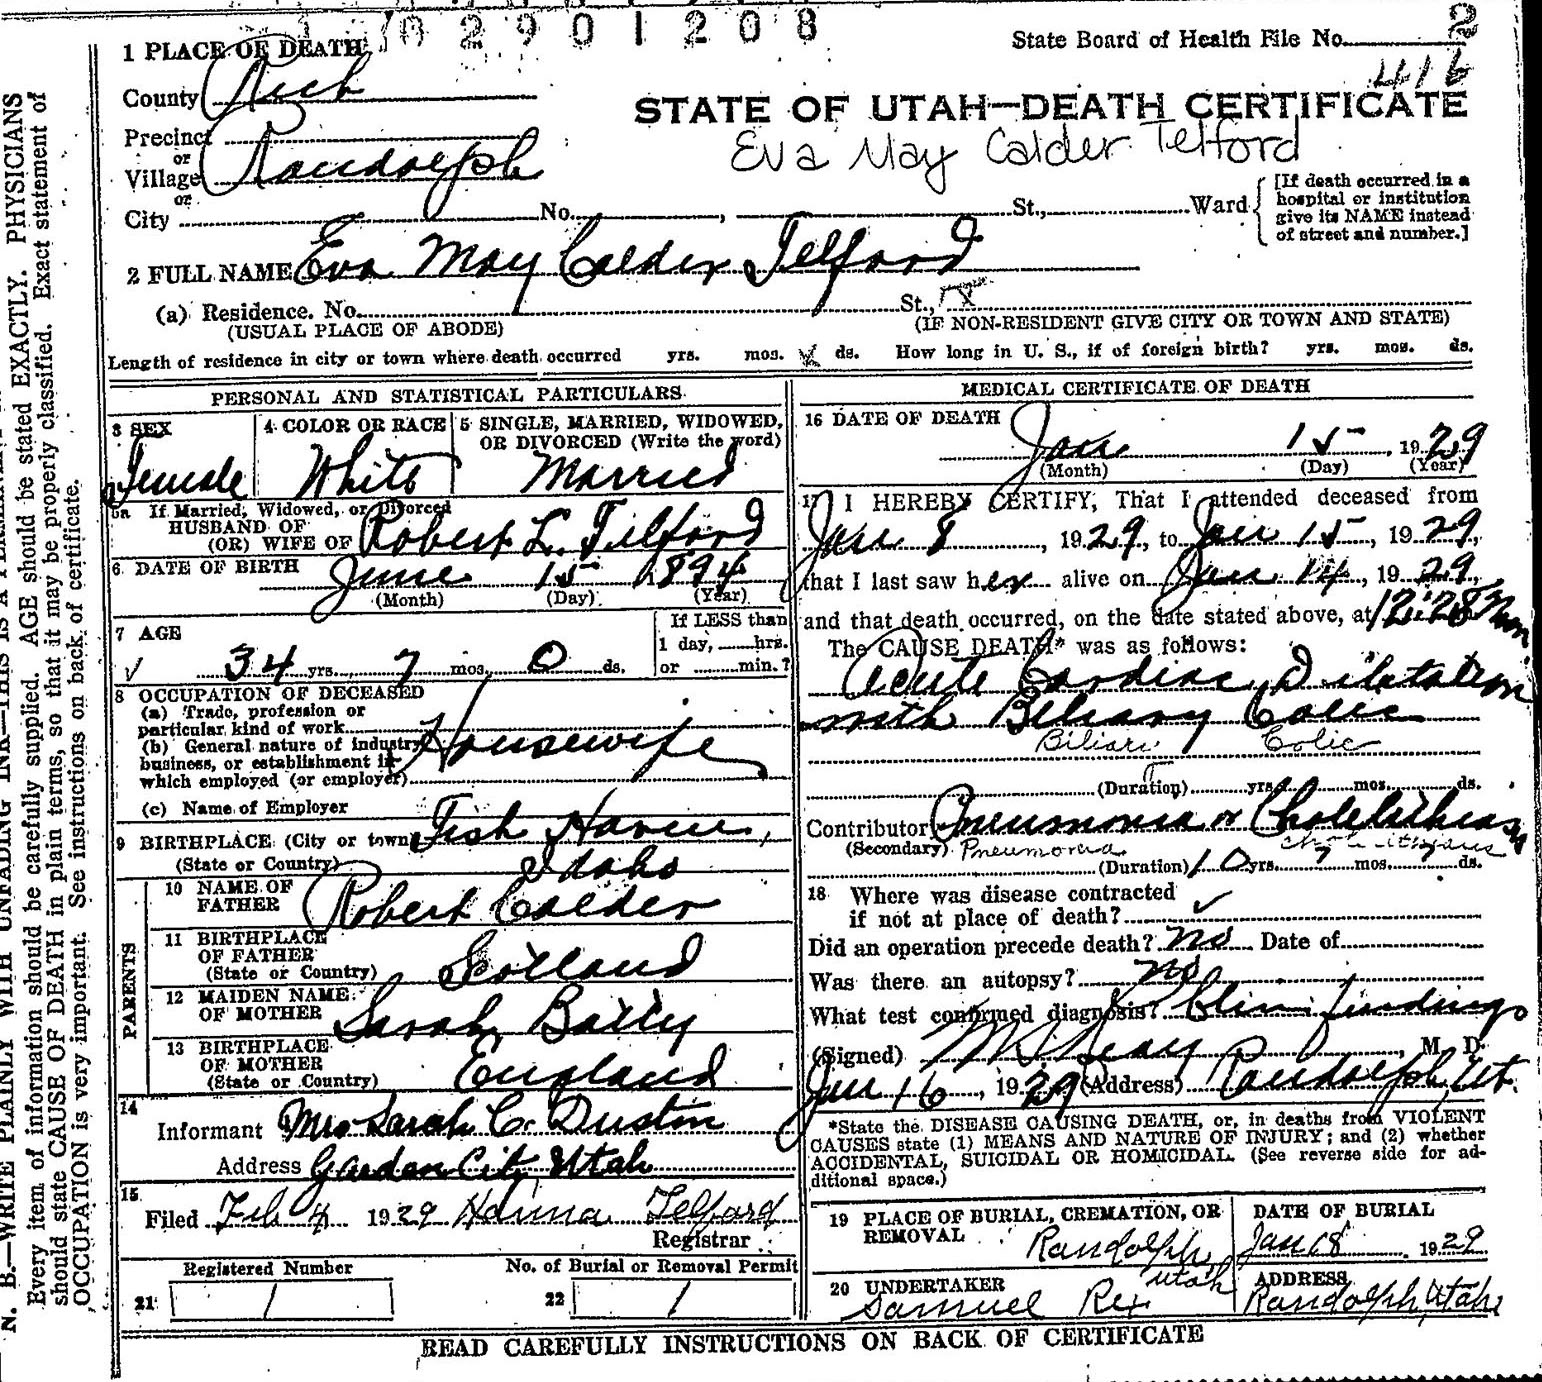 2901208
1 PLACE OF DEATH
State Board of Health File No. 2
416
County Rich
STATE OF UTAH—DEATH CERTIFICATE
Precinct
or
Village Randolph
Eva May Calder Telford
or
City No. , St., Ward
[If death occurred in a
hospital or institution
give its NAME instead
of street and number.]
2 FULL NAME Eva May Calder Telford
(a) Residence. No. St.,
(USUAL PLACE OF ABODE) (IF NON-RESIDENT GIVE CITY OR TOWN AND STATE)
Length of residence in city or town where death occurred yrs. mos. ds. How long in U. S., if of foreign birth? yrs. mos. ds.
PERSONAL AND STATISTICAL PARTICULARS
3 SEX 4 COLOR OR RACE 5 SINGLE, MARRIED, WIDOWED,
OR DIVORCED (Write the word)
Female White Married
5a If Married, Widowed, or Divorced
HUSBAND OF
(OR) WIFE OF Robert L. Telford
6 DATE OF BIRTH June 15 1894
(Month) (Day) (Year)
7 AGE
34 yrs. 7 mos. 0 ds.
If LESS than
1 day, hrs.
or min.?
8 OCCUPATION OF DECEASED
(a) Trade, profession or
particular kind of work
(b) General nature of industry
business, or establishment in
which employed (or employer)
Housewife
(c) Name of Employer
9 BIRTHPLACE (City or town) Fish Haven,
(State or Country) Idaho
PARENTS
10 NAME OF
FATHER Robert Calder
11 BIRTHPLACE
OF FATHER
(State or Country) Scotland
12 MAIDEN NAME
OF MOTHER Sarah Baily
13 BIRTHPLACE
OF MOTHER
(State or Country) England
14
Informant Mrs Sarah C. Duston
Address Garden City Utah
15
Filed Feb 4 1929 Telford
Registrar
Registered Number No. of Burial or Removal Permit
21 1 22 1
MEDICAL CERTIFICATE OF DEATH
16 DATE OF DEATH
Jan 15, 1929
(Month) (Day) (Year)
17 I HEREBY CERTIFY, That I attended deceased from
Jan 8, 1929, to Jan 15, 1929,
that I last saw her alive on Jan 14, 1929,
and that death occurred, on the date stated above, at 12:28
The CAUSE DEATH* was as follows:
Acute Cardiac Dilatation
with Biliary Colic
Biliari Colic
(Duration) yrs. mos. ds.
Contributor Pneumonia or Cholelithiasis
(Secondary) Pneumonia
(Duration) 10 yrs. mos. ds.
18 Where was disease contracted
if not at place of death?
Did an operation precede death? No Date of
Was there an autopsy? No
What test confirmed diagnosis? Clin. findings
(Signed) M. D.
Jan 16, 1929 (Address) Randolph, Ut.
*State the DISEASE CAUSING DEATH, or, in deaths from VIOLENT
CAUSES state (1) MEANS AND NATURE OF INJURY; and (2) whether
ACCIDENTAL, SUICIDAL OR HOMICIDAL. (See reverse side for ad-
ditional space.)
19 PLACE OF BURIAL, CREMATION, OR
REMOVAL Randolph, Utah
DATE OF BURIAL
Jan 18 1929
20 UNDERTAKER
Samuel Rex
ADDRESS
Randolph, Utah
READ CAREFULLY INSTRUCTIONS ON BACK OF CERTIFICATE
N. B.—WRITE PLAINLY WITH UNFADING INK—THIS IS A
Every item of information should be carefully supplied. AGE should be stated EXACTLY. PHYSICIANS
should state CAUSE OF DEATH in plain terms, so that it may be properly classified. Exact statement of
OCCUPATION is very important. See instructions on back of certificate.